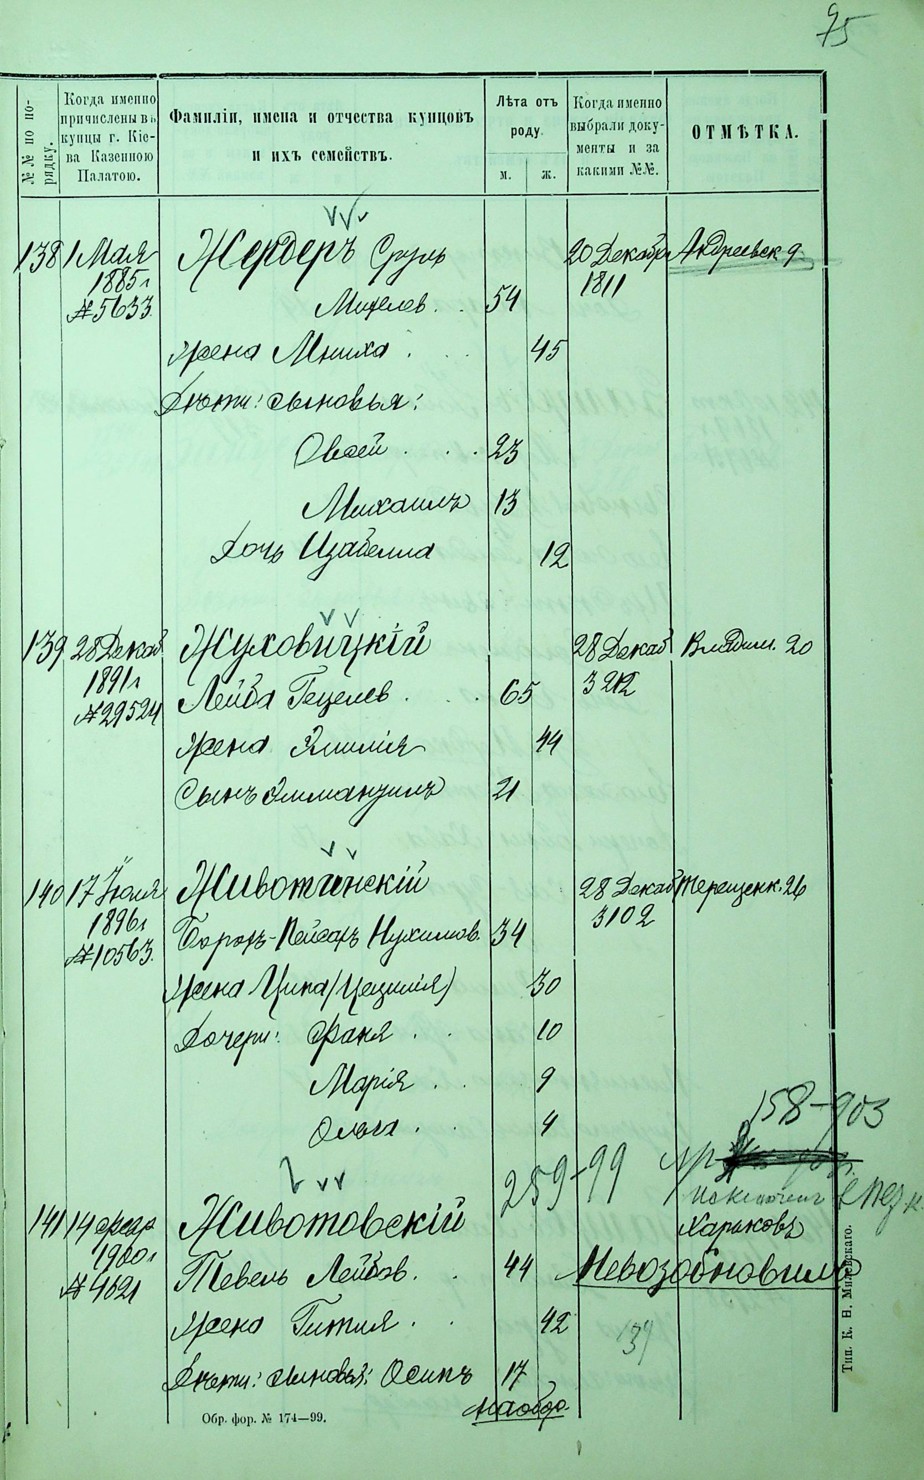 75
№№ по порядку.
Когда именно причислены въ купцы г. Кіева Казенною Палатою.
Фамиліи, имена и отчества купцовъ и ихъ семействъ.
Лѣта отъ роду.
м.
ж.
Когда именно выбрали документы и за какими №№.
ОТМѢТКА.
138 1 Мая Жербер Сруль 20 Декабр Андреевск 9
1885г 1811
№5633 Михелев. 54
жена Мниха 45
Дѣти: сыновья:
Овсей 23
Михаилъ 13
Дочь Изабелла 12
139 28 Декаб Жуховицкій 28 Декаб Владим. 20
1891г 3212
№29524 Лейба Гецелев 65
жена Эмилія 44
Сынъ Эммануилъ 21
140 17 Іюля Животинскій 28 Декаб Терещенк. 26
1896г 3102
№10563 Борох-Пейсахъ Нухимов. 34
жена Ципа (Цецилія) 30
Дочери: Фаня 10
Марія 9
Ольга 4
158-903
259-99
141 14 Животовскій Харьковъ
1900г
№4621 Тевель Лейбов. 44 Невозобновилъ
жена Гитля 42
134
Дѣти: сыновья: Осипъ 17
наобор.
Обр. фор. № 174—99.
Тип. К. Н. Милевскаго.